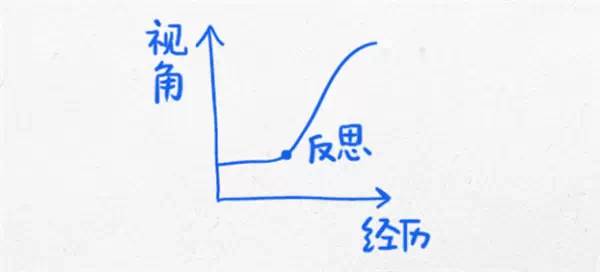 视角
反思
经历